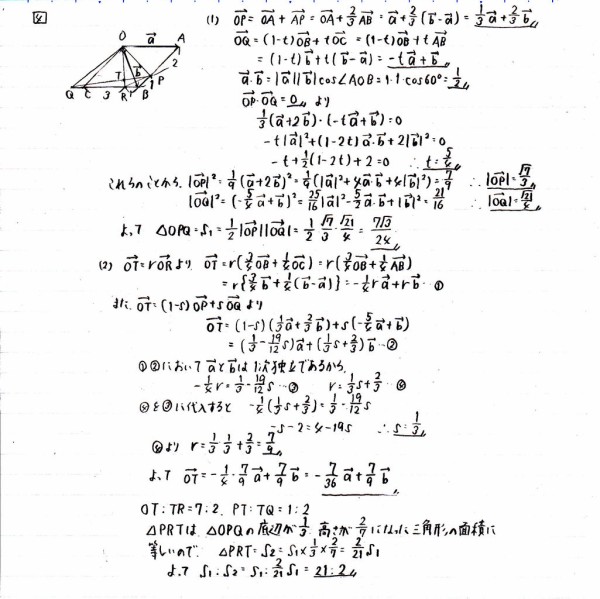 4
O a A
T b P 2
Q C 3 R 1 B 1
(1) OP = OA + AP = OA + 2/3 AB = a + 2/3 (b - a) = 1/3 a + 2/3 b
OQ = (1-t)OB + tOC = (1-t)OB + tAB
= (1-t)b + t(b - a) = -ta + b
a・b = |a||b|cos∠AOB = 1・1・cos60° = 1/2
OP・OQ = 0 より
1/3(a+2b)・(-ta+b)=0
-t|a|²+(1-2t)a・b+2|b|²=0
-t+1/2(1-2t)+2=0 ∴t=5/4
これらのことから、|OP|²=1/9(a+2b)²=1/9(|a|²+4a・b+4|b|²)=7/9 ∴|OP|=√7/3
|OQ|²=(-5/4a+b)²=25/16|a|²-5/2a・b+|b|²=21/16 ∴|OQ|=√21/4
よって △OPQ=S₁=1/2|OP||OQ|=1/2・√7/3・√21/4=7√3/24
(2) OT=rOR より OT=r(3/4OB+1/4OC)=r(3/4OB+1/4AB)
=r{3/4b+1/4(b-a)}=-1/4ra+rb…①
また、OT=(1-s)OP+sOQ より
OT=(1-s)(1/3a+2/3b)+s(-5/4a+b)
=(1/3-19/12s)a+(1/3s+2/3)b…②
①②において aとbは1次独立であるから
-1/4r=1/3-19/12s…③ r=1/3s+2/3…④
④を③に代入すると -1/4(1/3s+2/3)=1/3-19/12s
-s-2=4-19s ∴s=1/3
④より r=1/3・1/3+2/3=7/9
よって OT=-1/4・7/9a+7/9b=-7/36a+7/9b
OT:TR=7:2, PT:TQ=1:2
△PRTは、△OPQの底辺が1/3 高さが2/7になった三角形の面積に
等しいので、△PRT=S₂=S₁×1/3×2/7=2/21S₁
よって S₁:S₂=S₁:2/21S₁=21:2